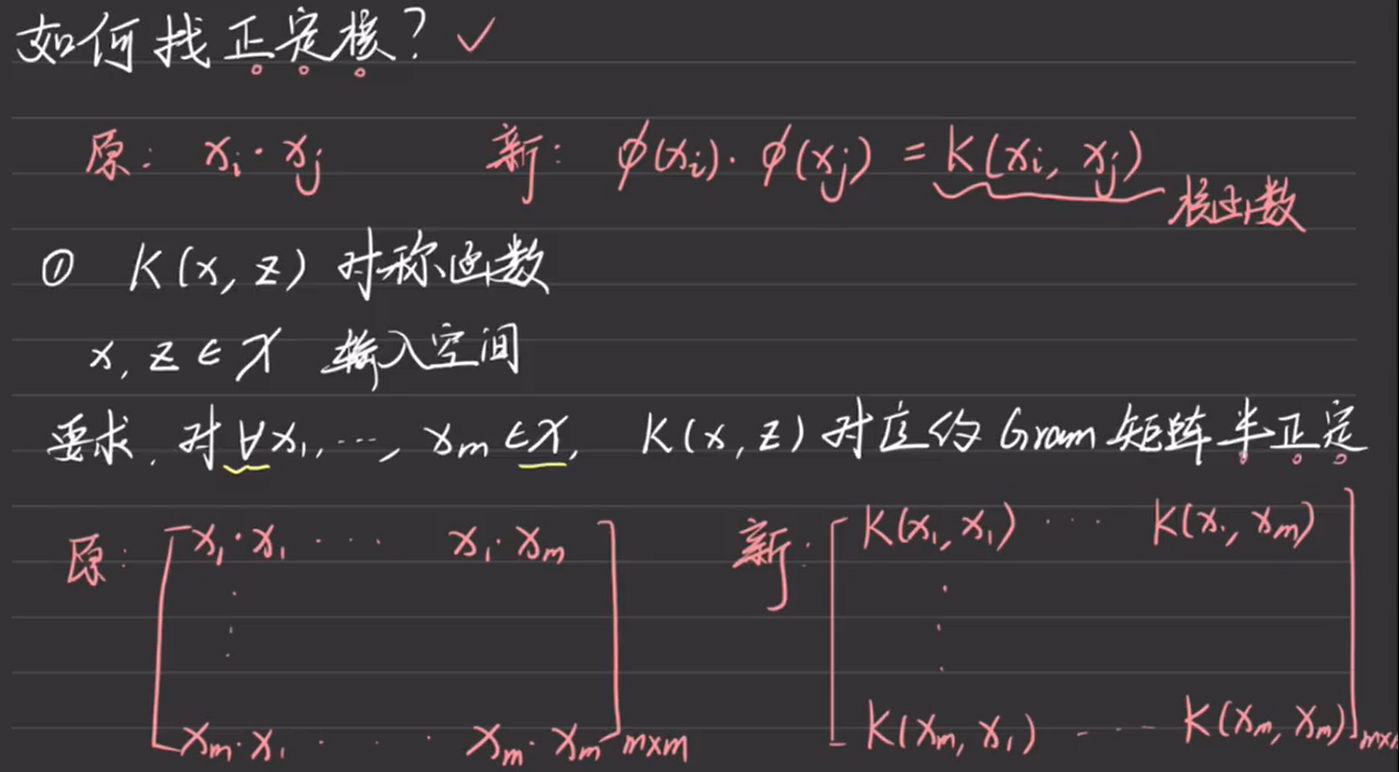 如何找正定核? ✓
原: xi·xj 新: φ(xi)·φ(xj) = K(xi, xj)
核函数
① K(x, z) 对称函数
x, z ∈ X 输入空间
要求, 对∀x1, …, xm ∈ X, K(x, z) 对应的 Gram 矩阵半正定
原: [ x1·x1 ··· x1·xm 新: [ K(x1, x1) ··· K(x1, xm) ]
⋮ ⋮
xm·x1 ··· xm·xm ] m×m K(xm, x1) ··· K(xm, xm) ] m×m